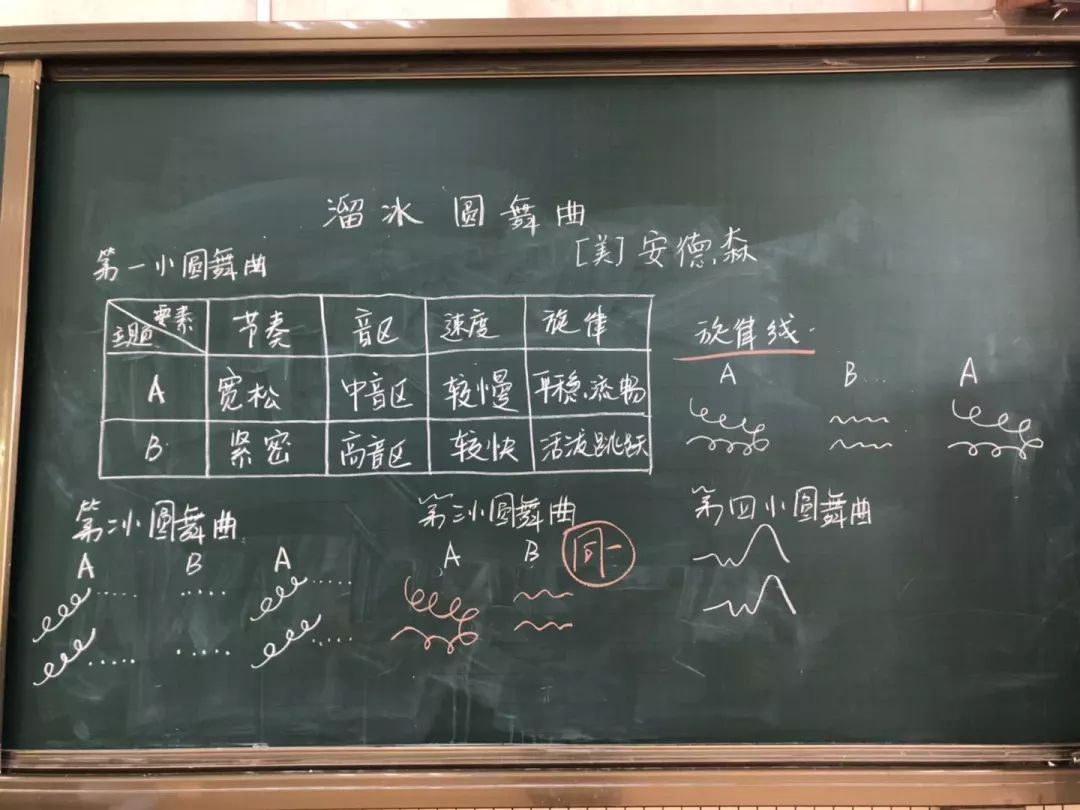 溜冰圆舞曲
[美]安德森
第一小圆舞曲
要素 主题 节奏 音区 速度 旋律
A 宽松 中音区 较慢 平稳、流畅
B 紧密 高音区 较快 活泼跳跃
旋律线
A B A
第二小圆舞曲
A B A
第三小圆舞曲
A B 同一
第四小圆舞曲